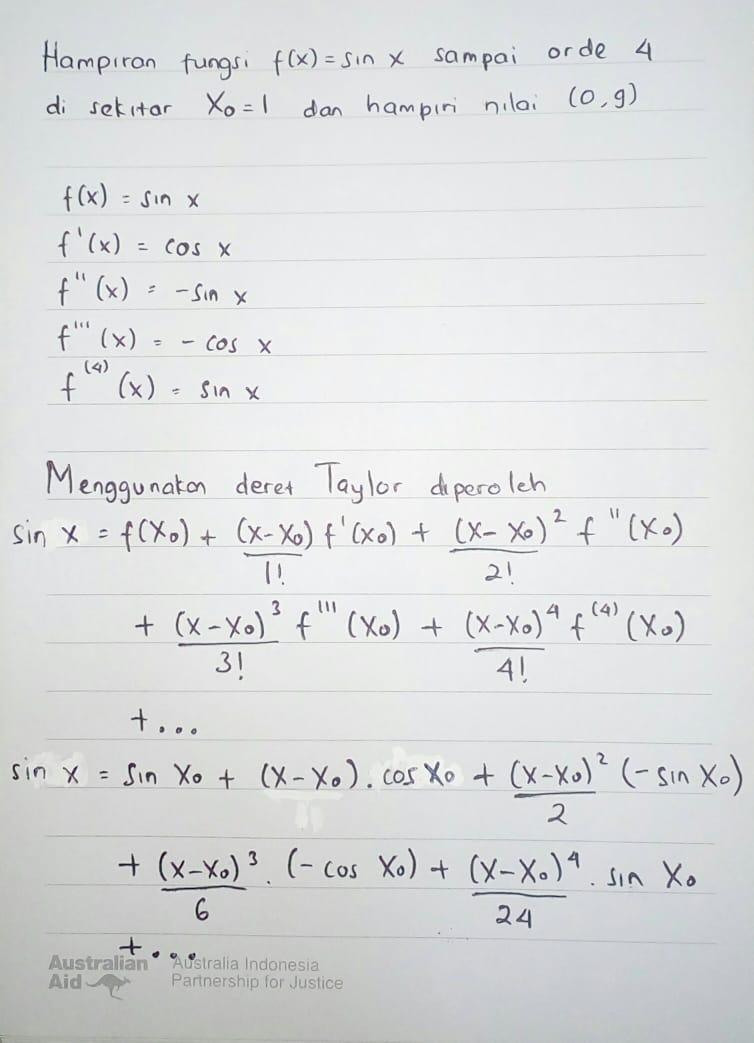 Hampiran fungsi f(x) = sin x sampai orde 4
di sekitar X₀ = 1 dan hampiri nilai (0,9)
f(x) = sin x
f'(x) = cos x
f"(x) = -sin x
f'''(x) = - cos x
f⁽⁴⁾(x) = sin x
Menggunakan deret Taylor diperoleh
sin x = f(X₀) + (x-X₀)/1! f'(X₀) + (x-X₀)²/2! f"(X₀)
+ (x-X₀)³/3! f'''(X₀) + (x-X₀)⁴/4! f⁽⁴⁾(X₀)
+...
sin x = sin X₀ + (x-X₀). cos X₀ + (x-X₀)²/2 (-sin X₀)
+ (x-X₀)³/6 . (-cos X₀) + (x-X₀)⁴/24 . sin X₀
+...
Australian Aid
Australia Indonesia
Partnership for Justice